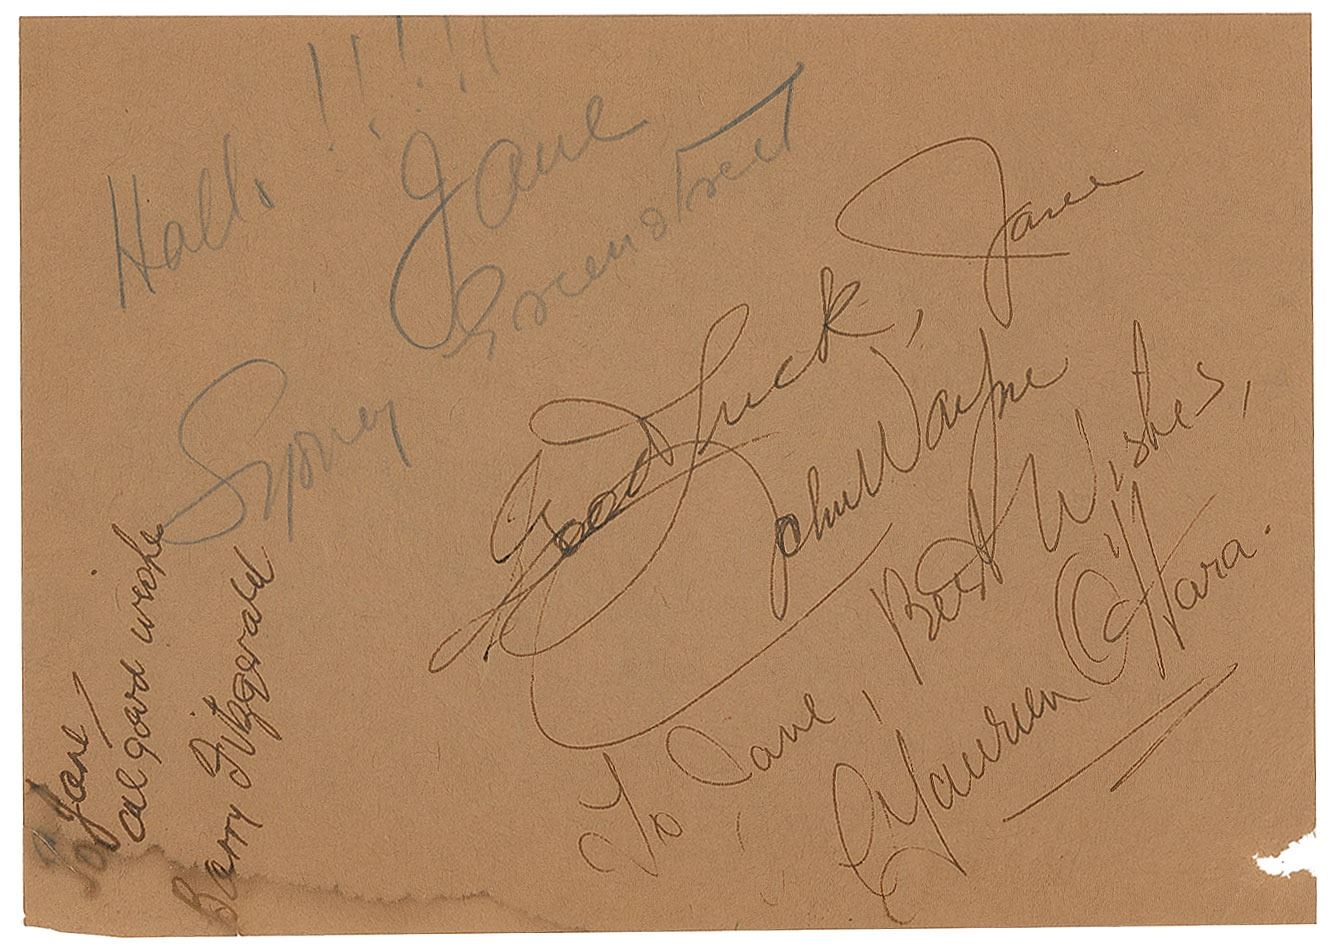 Hallo !!!!!
Jane
Sydney Greenstreet
Good Luck, Jane
John Wayne
To Jane, Best Wishes,
Maureen O'Hara.
To Jane/
all good wishes
Barry Fitzgerald